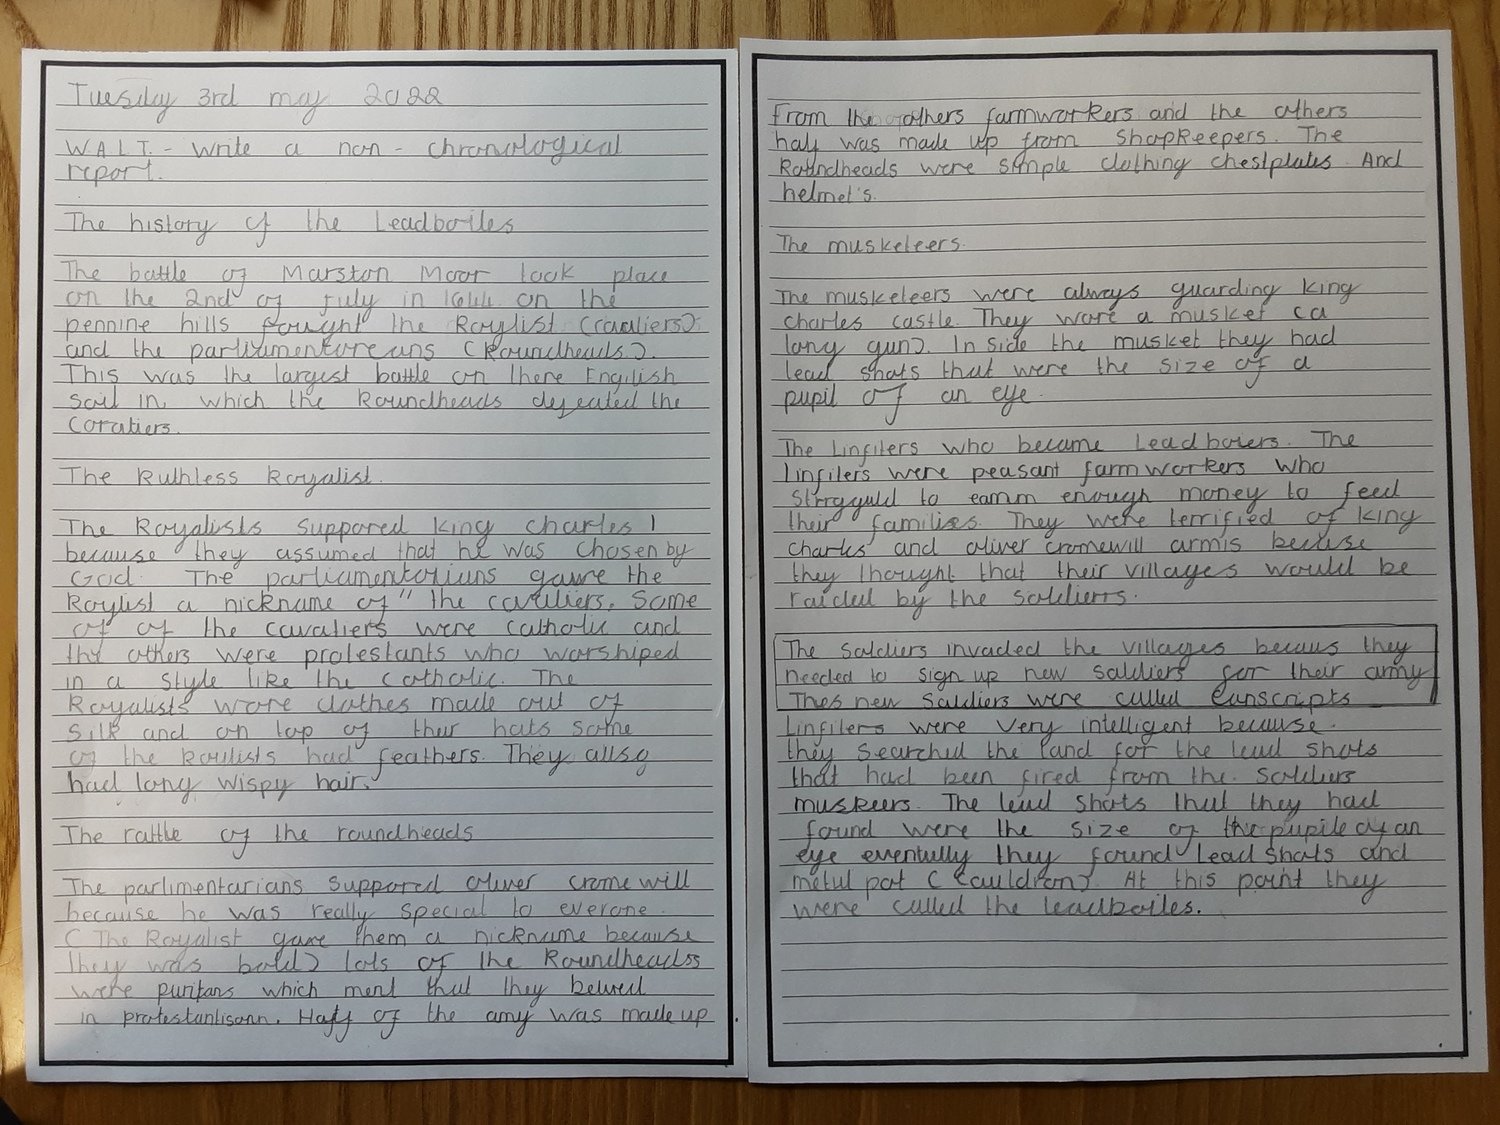 Tuesday 3rd may 2022
W.A.L.T. - Write a non - chronological
report.
The history of the Leadboiles
The battle of Marston Moor took place
on the 2nd of july in 1644 on the
pennine hills fought the Roylist (cavaliers)
and the parliamentoreans (Roundheads).
This was the largest battle on there Engilish
soil in which the Roundheads defeated the
Coraliers.
The Ruthless Royalist.
The Royalists Suppored king Charles I
because they assumed that he was Chosen by
God. The parliamentoriuns gave the
Roylist a nickname of " the cavaliers. Some
of of the cavaliers were catholic and
the others were protestants who worshiped
in a style like the Catholic. The
Royalists wore clothes made out of
Silk and on top of their hats some
of the Roylists had feathers. They allso
had long wispy hair.
The rattle of the roundheads
The parlimentarians Suppored oliver cromewill
because he was really special to everone.
( The Royalist gave them a nickname because
they was bold) lots of the Roundheadss
were puritans which ment that they belived
in protestantisom. Half of the amy was made up
From the others farmworkers and the others
half was made up from ShopKeepers. The
Roundheads were simple clothing chestplates. And
helmet's.
The musketeers.
The musketeers were always guarding king
charles castle. They wore a musket (a
long gun). In side the musket they had
lead shots that were the size of a
pupil of an eye.
The Linfilers who became Lead boiers. The
linfilers were peasant farmworkers who
Strrgguld to earnm enough money to feed
their families. They were terrified of king
charles' and oliver cromewill armis becuse
they thought that their villages would be
raided by the soldierrs.
The soldiers invaded the villages becaus they
needed to sign up new soldiers for their army
Thes new Soldiers were called Conscripts
Linfilers were very intelligent because.
they searched the land for the lead shots
that had been fired from the. Soldiers
muskeers. The lead shots that they had
found were the size of the pupile of an
eye eventully they found lead shots and
metul pot (cauldron). At this point they
were called the leadboiles.